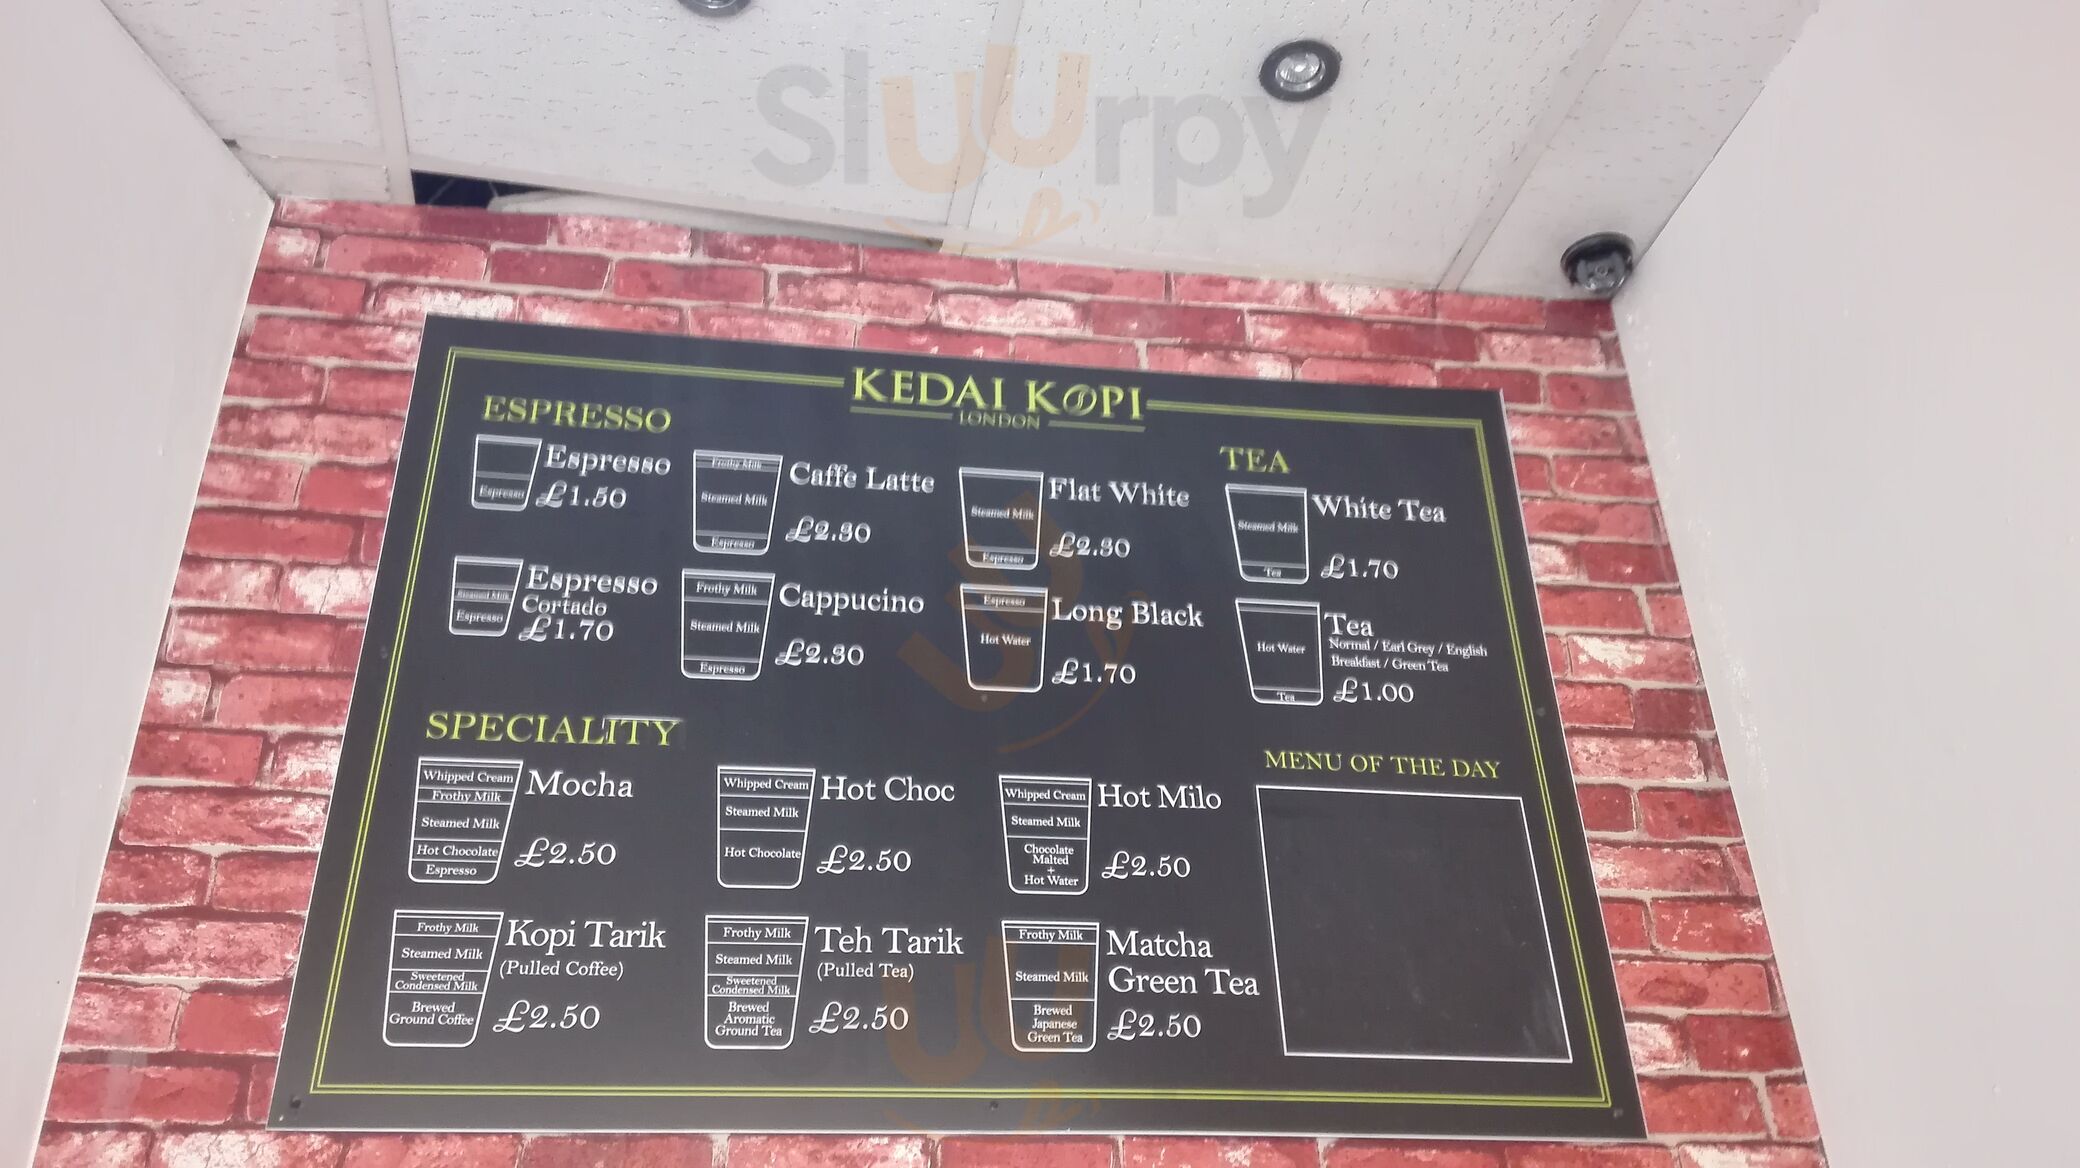 Sluurpy
KEDAI KOPI
LONDON
ESPRESSO
Espresso
Espresso
£1.50
Frothy Milk
Steamed Milk
Espresso
Caffe Latte
£2.30
Steamed Milk
Espresso
Flat White
£2.30
Steamed Milk
Espresso
Espresso
Cortado
£1.70
Frothy Milk
Steamed Milk
Espresso
Cappucino
£2.30
Espresso
Hot Water
Long Black
£1.70
TEA
Steamed Milk
Tea
White Tea
£1.70
Hot Water
Tea
Tea
Normal / Earl Grey / English
Breakfast / Green Tea
£1.00
SPECIALITY
Whipped Cream
Frothy Milk
Steamed Milk
Hot Chocolate
Espresso
Mocha
£2.50
Whipped Cream
Steamed Milk
Hot Chocolate
Hot Choc
£2.50
Whipped Cream
Steamed Milk
Chocolate
Malted
+
Hot Water
Hot Milo
£2.50
Frothy Milk
Steamed Milk
Sweetened
Condensed Milk
Brewed
Ground Coffee
Kopi Tarik
(Pulled Coffee)
£2.50
Frothy Milk
Steamed Milk
Sweetened
Condensed Milk
Brewed
Aromatic
Ground Tea
Teh Tarik
(Pulled Tea)
£2.50
Frothy Milk
Steamed Milk
Brewed
Japanese
Green Tea
Matcha
Green Tea
£2.50
MENU OF THE DAY